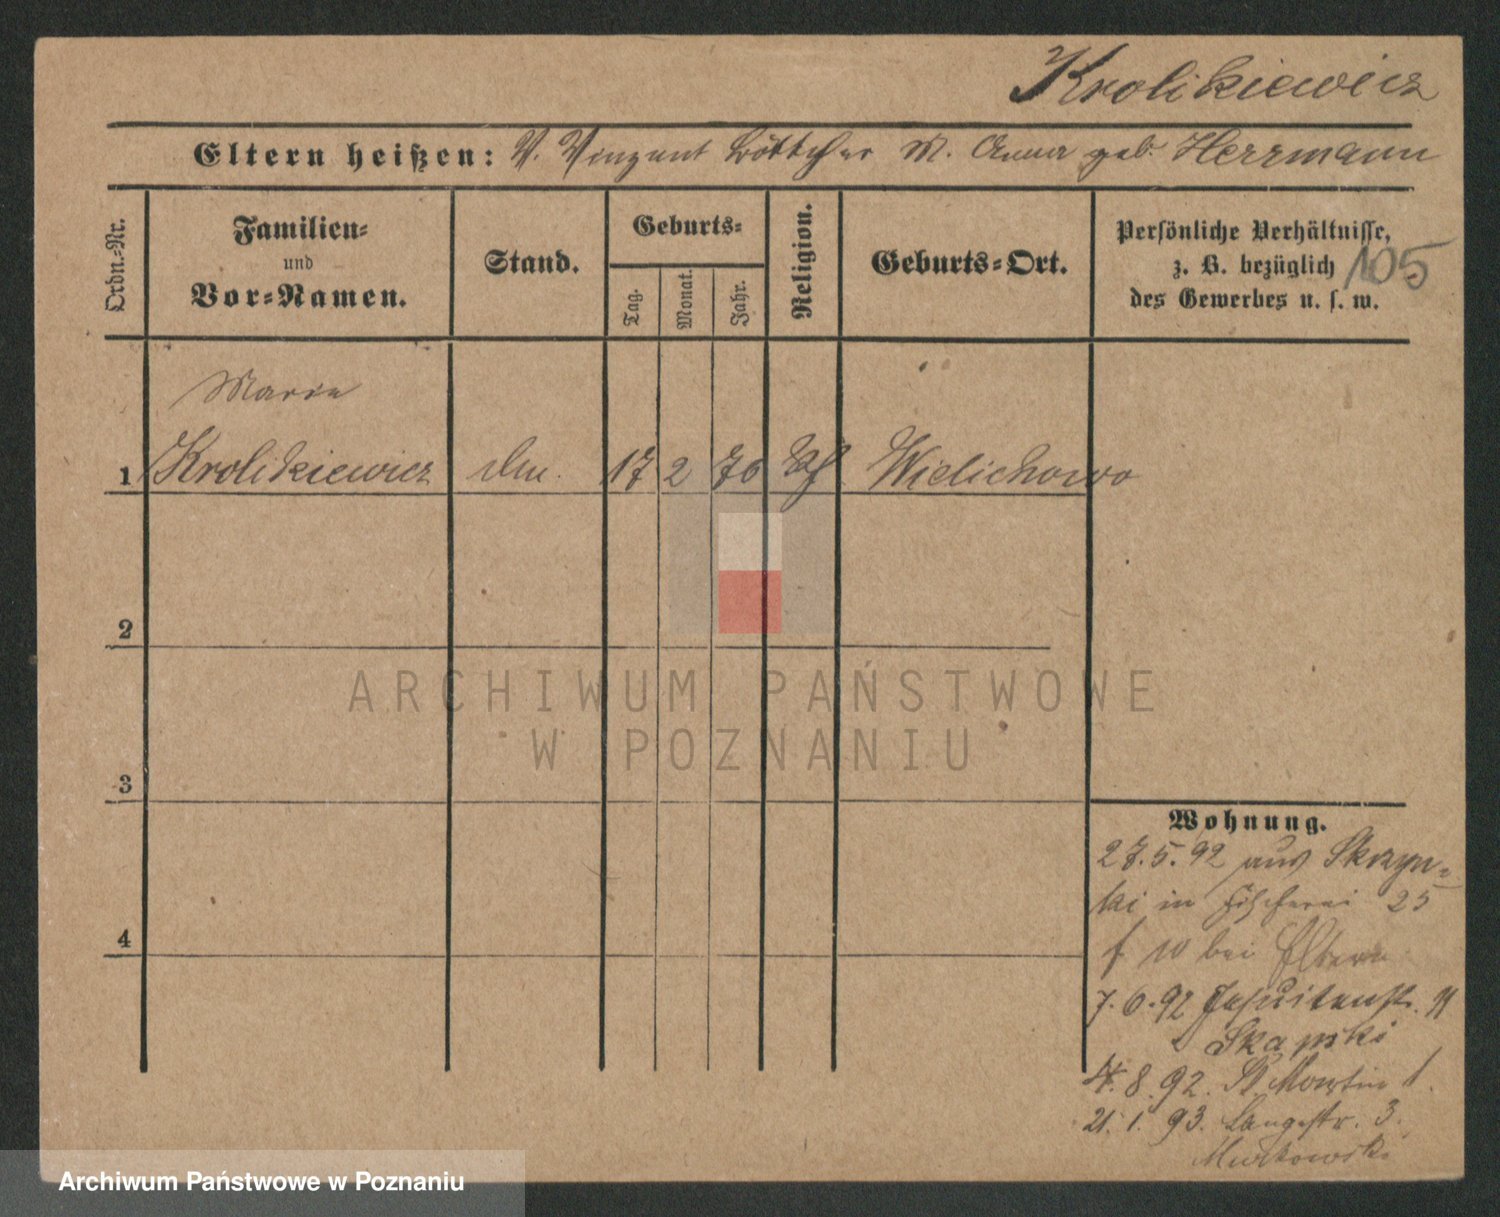 Krolikiewicz
Eltern heißen: V. Vinzent Böttcher M. Anna geb. Herrmann
Ordn.-Nr.
Familien-
und
Vor-Namen.
Stand.
Geburts-
Tag.
Monat.
Jahr.
Religion.
Geburts-Ort.
Persönliche Verhältnisse,
z. B. bezüglich
des Gewerbes u. s. w.
105
Marie
1 Krolikiewicz 17 2 76 Wielichowo
2
3
4
Wohnung.
27.5.92 aus
in Fischerei 25
bei Eltern
7.6.92 Jesuitenstr. 11
Skapski
8.92. St Martin 1.
21.1.93. Langestr. 3.
ARCHIWUM PAŃSTWOWE
W POZNANIU
Archiwum Państwowe w Poznaniu